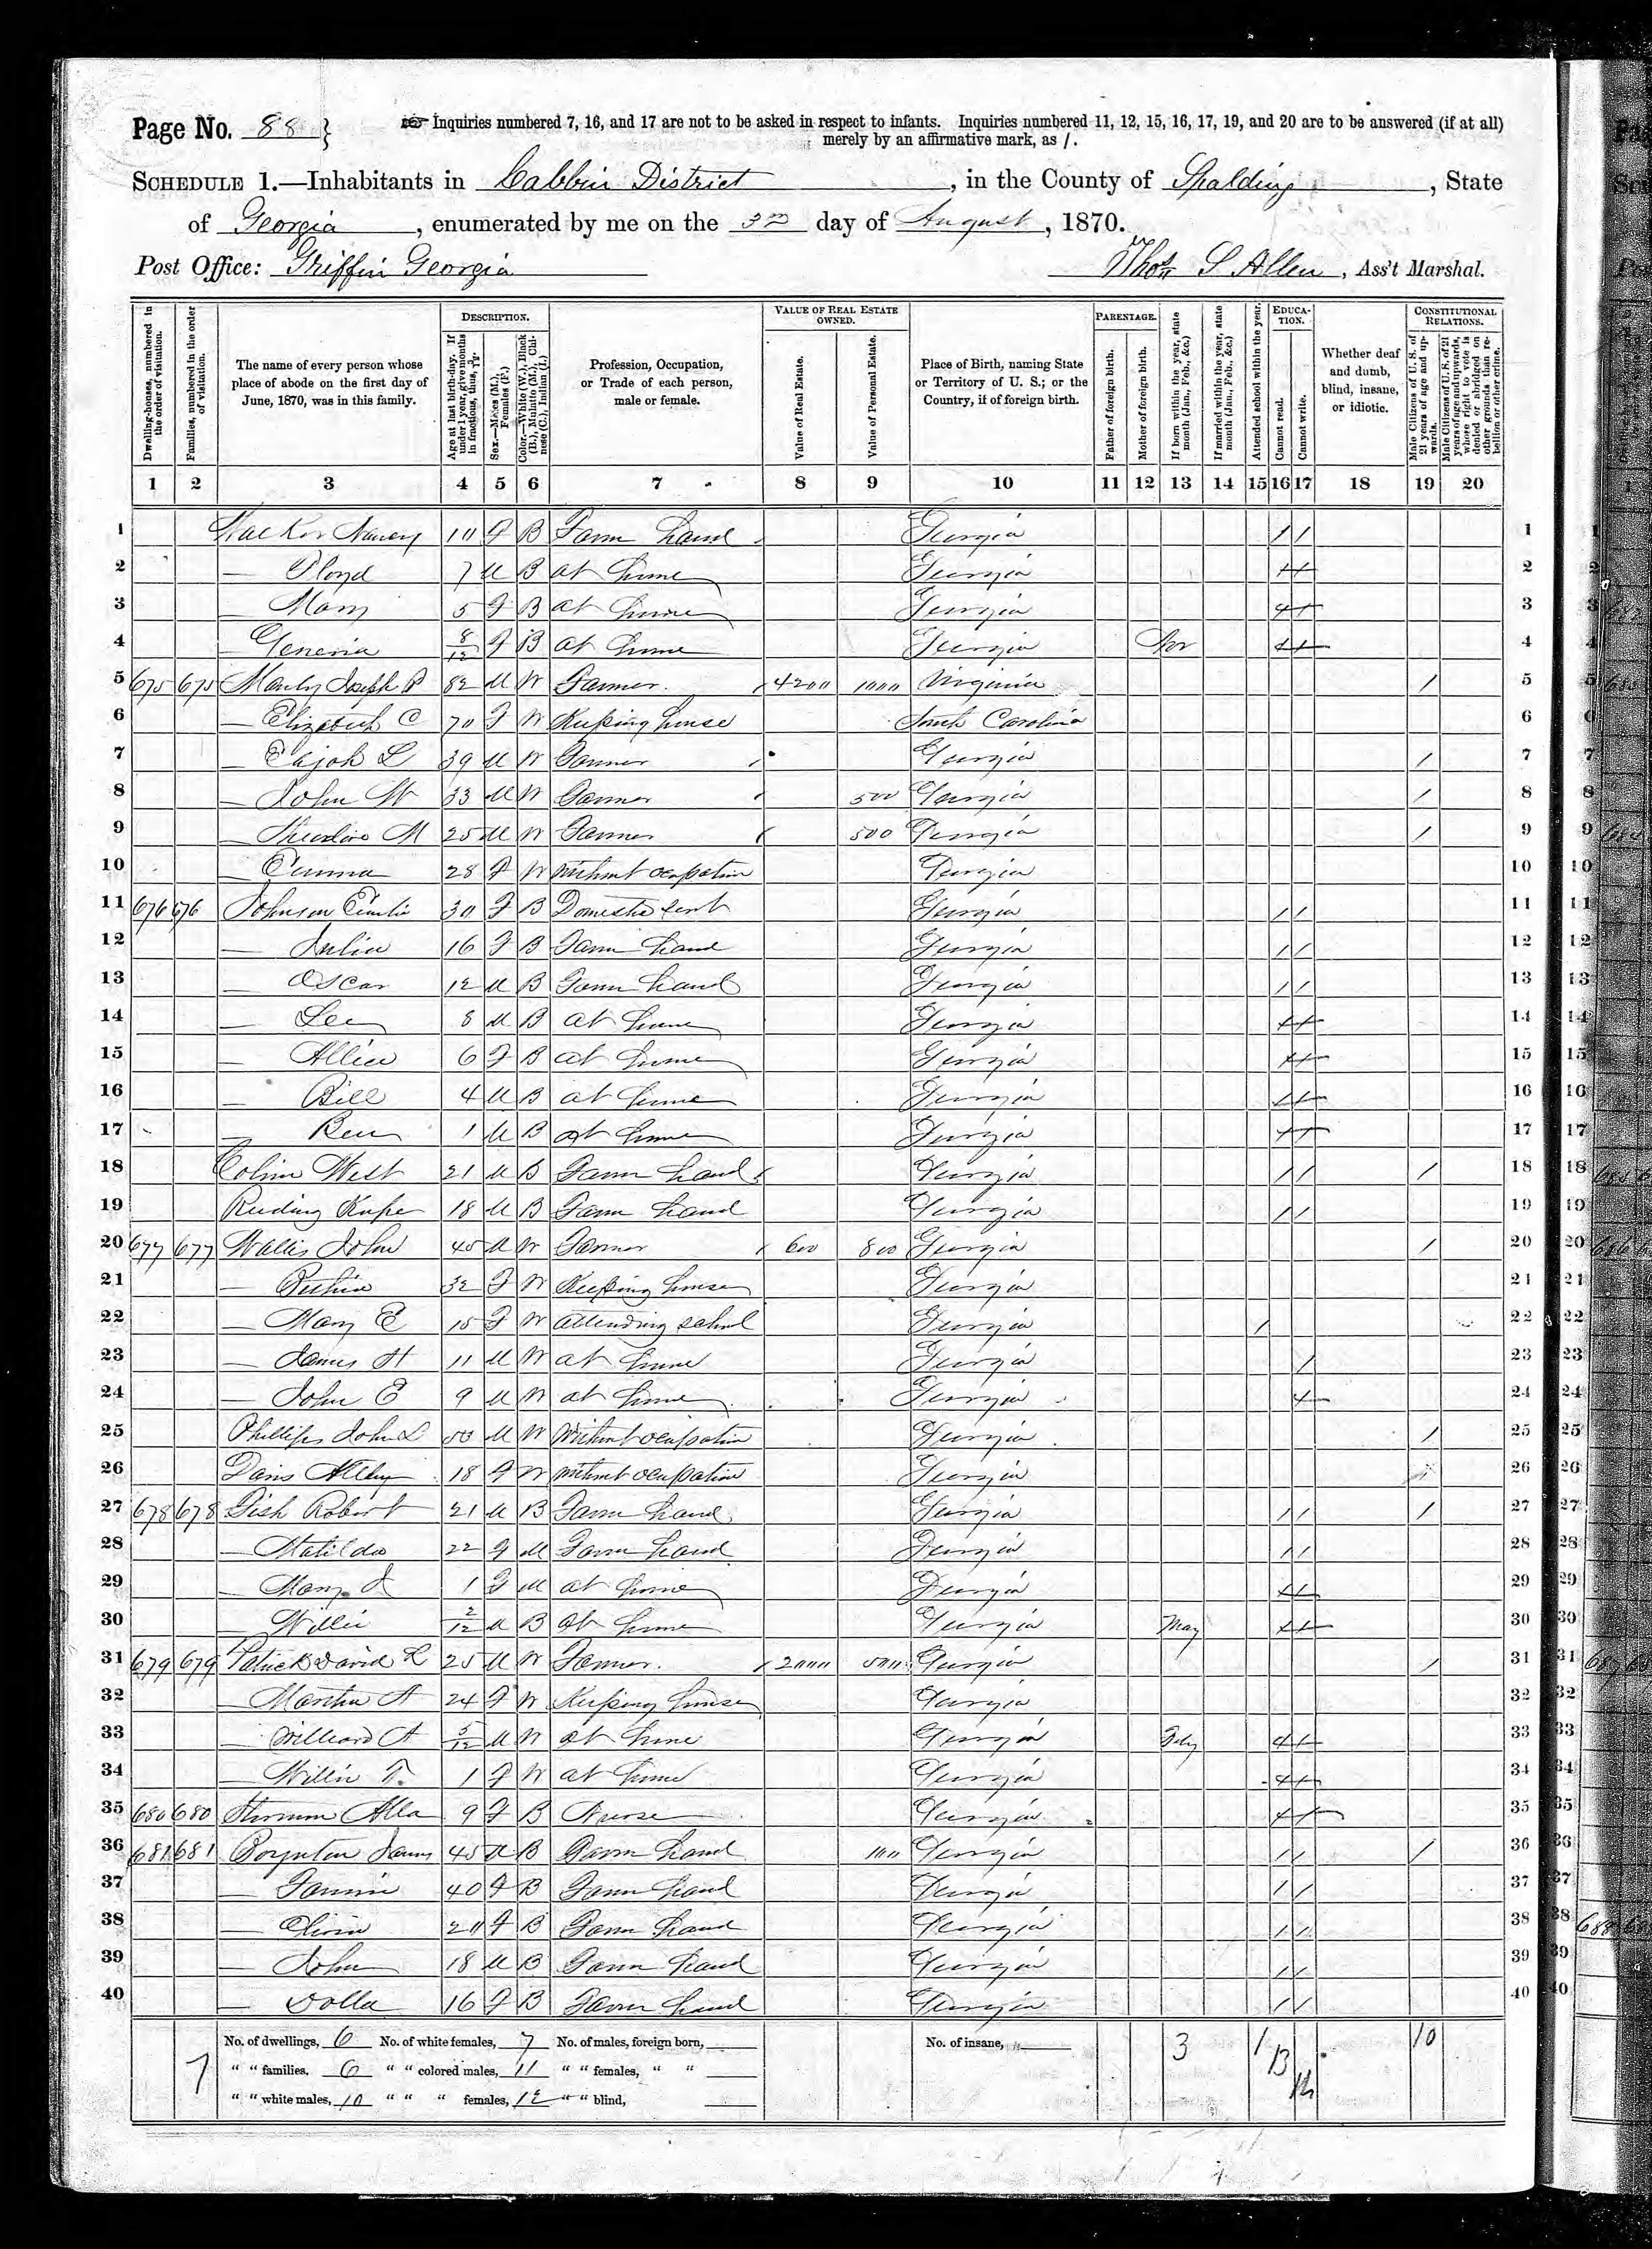 Page No. 88 } ☞ Inquiries numbered 7, 16, and 17 are not to be asked in respect to infants. Inquiries numbered 11, 12, 15, 16, 17, 19, and 20 are to be answered (if at all)
merely by an affirmative mark, as /.
SCHEDULE 1.—Inhabitants in Cabbin District, in the County of Spalding, State
of Georgia, enumerated by me on the day of August, 1870.
Post Office: Griffin Georgia Thos S Allen, Ass't Marshal.
Dwelling-houses, numbered in the order of visitation.
Families, numbered in the order of visitation.
The name of every person whose place of abode on the first day of June, 1870, was in this family.
DESCRIPTION.
Age at last birth-day. If under 1 year, give months in fractions, thus, 3/12.
Sex.—Males (M.), Females (F.)
Color.—White (W.), Black (B.), Mulatto (M.), Chinese (C.), Indian (I.)
Profession, Occupation, or Trade of each person, male or female.
VALUE OF REAL ESTATE OWNED.
Value of Real Estate.
Value of Personal Estate.
Place of Birth, naming State or Territory of U. S.; or the Country, if of foreign birth.
PARENTAGE.
Father of foreign birth.
Mother of foreign birth.
If born within the year, state month (Jan., Feb., &c.)
If married within the year, state month (Jan., Feb., &c.)
Attended school within the year.
EDUCATION.
Cannot read.
Cannot write.
Whether deaf and dumb, blind, insane, or idiotic.
CONSTITUTIONAL RELATIONS.
Male Citizens of U. S. of 21 years of age and upwards.
Male Citizens of U. S. of 21 years of age and upwards, where right to vote is denied or abridged on other grounds than rebellion or other crime.
1 2 3 4 5 6 7 8 9 10 11 12 13 14 15 16 17 18 19 20
1 Nancy 10 F B Farm hand Georgia / / 1
2 — Floyd 7 M B at home Georgia 2
3 — Mary 5 F B at home Georgia 3
4 — 8/12 F B at home Georgia 4
5 675 675 Manly Joseph P 82 M W Farmer 4200 1000 Virginia / 5
6 — Elizabeth C 70 F W Keeping house South Carolina 6
7 — Elijah L 39 M W Farmer Georgia / 7
8 — John W 33 M W Farmer 500 Georgia / 8
9 — M 25 M W Farmer 500 Georgia / 9
10 — Emma 28 F W Without ocupation Georgia 10
11 676 676 Johnson 30 F B Domestic Servt Georgia / / 11
12 — Julia 16 F B Farm hand Georgia / / 12
13 — Oscar 12 M B Farm hand Georgia / / 13
14 — Lee 8 M B at home Georgia 14
15 — Allice 6 F B at home Georgia 15
16 — Bill 4 M B at home Georgia 16
17 — Ben 1 M B at home Georgia 17
18 West 21 M B Farm hand Georgia / / / 18
19 18 M B Farm hand Georgia / / 19
20 677 677 Wallis John 45 M W Farmer 600 800 Georgia / 20
21 — 32 F W Keeping house Georgia 21
22 — Mary E 15 F W attending school Georgia / 22
23 — James H 11 M W at home Georgia / 23
24 — John E 9 M W at home Georgia 24
25 Phillips John L M W Without ocupation Georgia / 25
26 Davis 18 F W Without ocupation Georgia 26
27 678 678 Robert 21 M B Farm hand Georgia / / / 27
28 — Matilda 22 F M Farm hand Georgia / / 28
29 — Mary J 1 F M at home Georgia 29
30 — Willie 2/12 M B at home Georgia May 30
31 679 679 Patrick David L 25 M W Farmer 2000 500 Georgia / 31
32 — Martha A 24 F W Keeping house Georgia 32
33 — William A 5/12 M W at home Georgia Feby 33
34 — Willie T. 1 F W at home Georgia 34
35 680 680 Alla 9 F B Nurse Georgia 35
36 681 681 Boynton James 45 M B Farm hand 100 Georgia / / / 36
37 — Fannie 40 F B Farm hand Georgia / / 37
38 — 20 F B Farm hand Georgia / / 38
39 — John 18 M B Farm hand Georgia / / 39
40 — Dolla 16 F B Farm hand Georgia / / 40
No. of dwellings, 6 No. of white females, 7 No. of males, foreign born, No. of insane, 3 1 13 10
7 " " families, 6 " " colored males, 11 " " females, " "
" " white males, 10 " " " females, 12 " " blind,